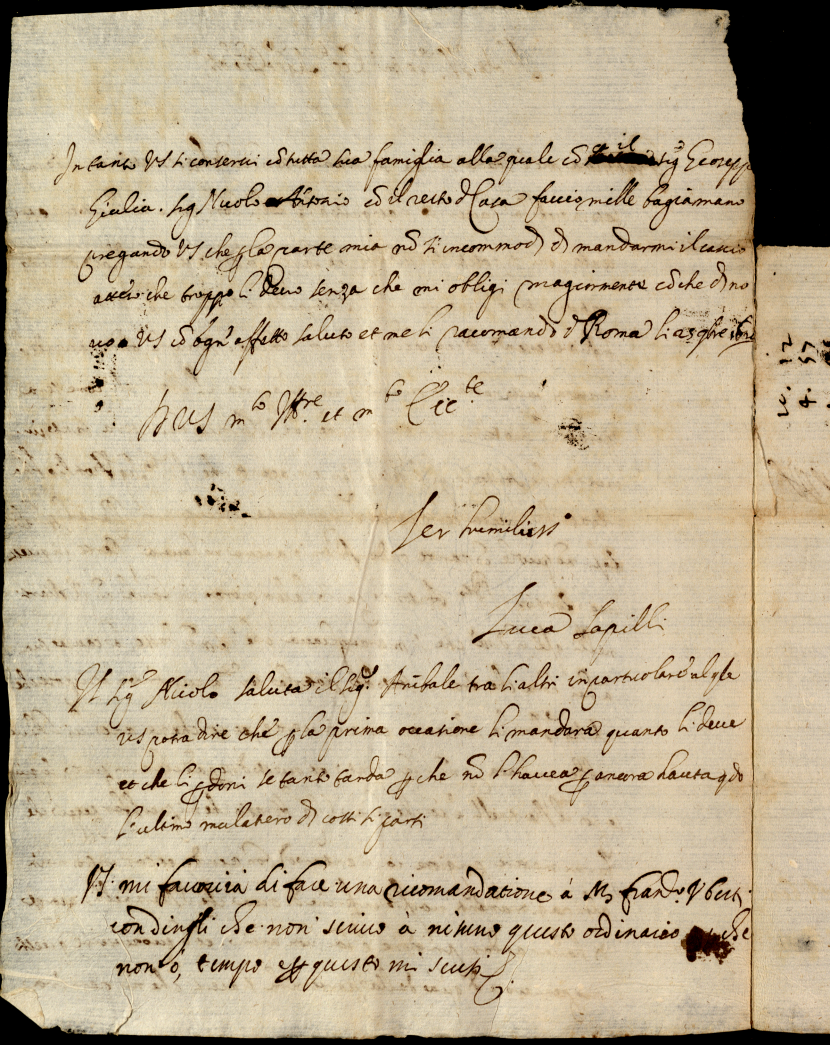 In tanto VS si conservi cõ tutta sua famiglia alla quale cõ il Sig.
Giulia. Sig Nicolo Antonio cõ il resto d Casa faccio mille bagiamano
pregando VS che p la parte mia nõ si incommodi di mandarmi il cascio
che troppo li devo senza che mi oblighi magiormente cõ che di no
vo VS cõ ogn' affetto saluto et me li racomando d Roma li 23
D VS m.to Ill.re et m.to Ecc.te
Ser humiliss.o
Luca Sapilli
Il Sig.r Nicolo saluta il Sig.r Anibale tra li altri in particolare al qle
VS potra dire che p la prima occasione li mandara quanto li deve
et che li pdoni se tanto tarda p che nõ l'havea p ancora hauta qdo
l'ultimo mulatiero di costi si parti
VS. mi favorirà di fare una ricomandatione à M. Franc.o Uberti
con dirgli che non scrivo à nisuno questo ordinario che
non ó, tempo e p questo mi scusi
12
4. 57